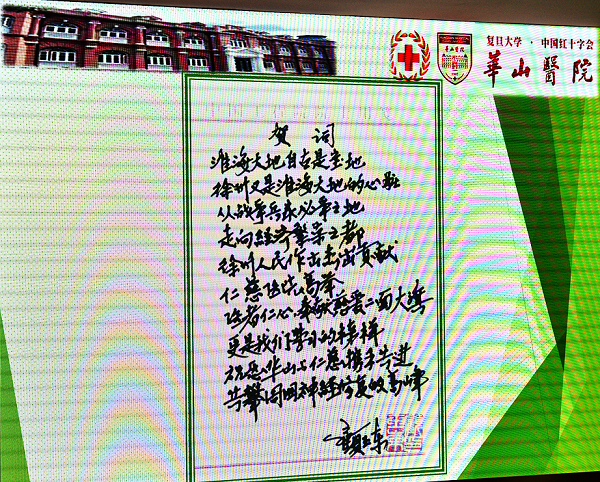 复旦大学·中国红十字会
華山醫院
贺词
淮海大地自古是宝地
徐州又是淮海大地的心脏
从战争兵家必争之地
走向经济繁荣之都
徐州人民作出杰出贡献
仁慈医院高举
医者仁心、奉献慈爱二面大旗
更是我们学习的榜样
祝愿华山与仁慈携手共进
共攀周围神经修复的高峰
顾玉东